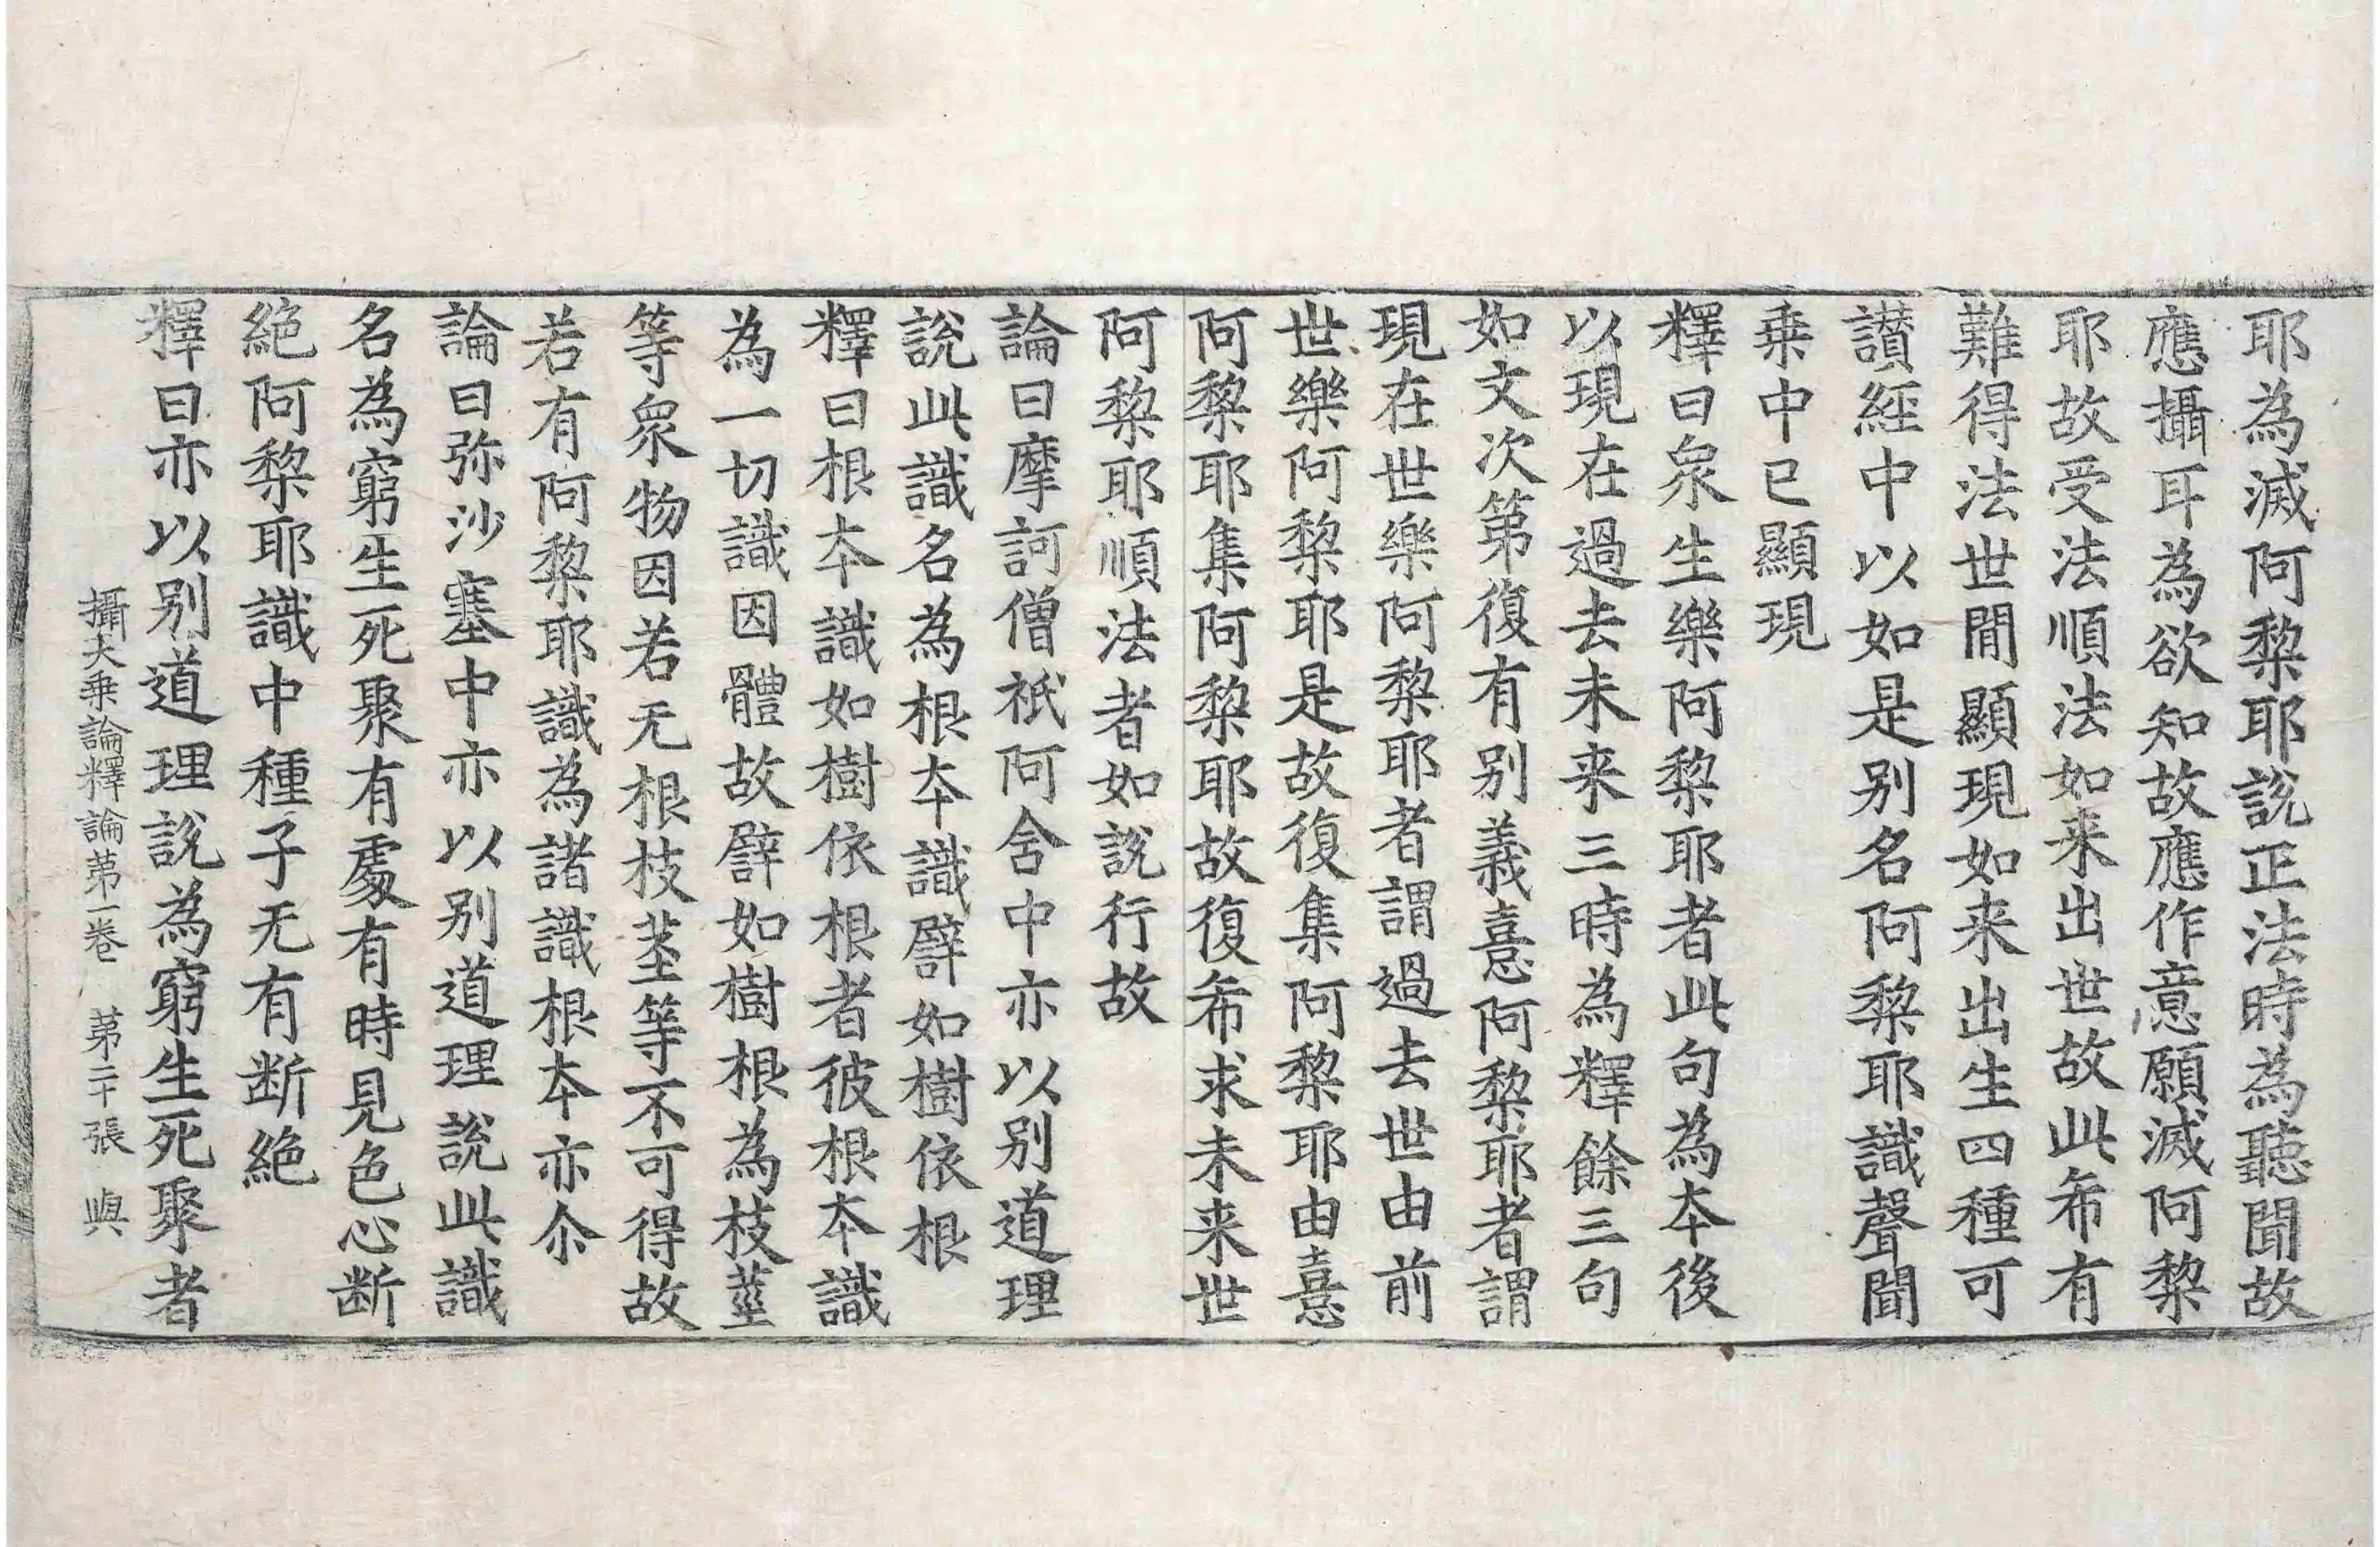 耶為滅阿棃耶說正法時為聽聞故
應攝耳為欲知故應作意願滅阿棃
耶故受法順法如来出世故此希有
難得法世間顯現如来出生四種可
讃經中以如是别名阿棃耶識聲聞
乗中已顯現
釋曰衆生樂阿棃耶者此句為夲後
以現在過去未来三時為釋餘三句
如文次第復有别義憙阿棃耶者謂
現在世樂阿棃耶者謂過去世由前
世樂阿棃耶是故復集阿棃耶由憙
阿棃耶集阿棃耶故復希求未来世
阿棃耶順法者如說行故
論曰摩訶僧祇阿含中亦以别道理
說此識名為根夲識譬如樹依根
釋曰根夲識如樹依根者彼根夲識
為一切識因體故譬如樹根為枝莖
等衆物因若无根枝茎等不可得故
若有阿棃耶識為諸識根夲亦尒
論曰弥沙塞中亦以别道理說此識
名為窮生死聚有處有時見色心断
絶阿棃耶識中種子无有断絶
釋曰亦以别道理說為窮生死聚者
攝大乗論釋論第一卷　第二十張　與